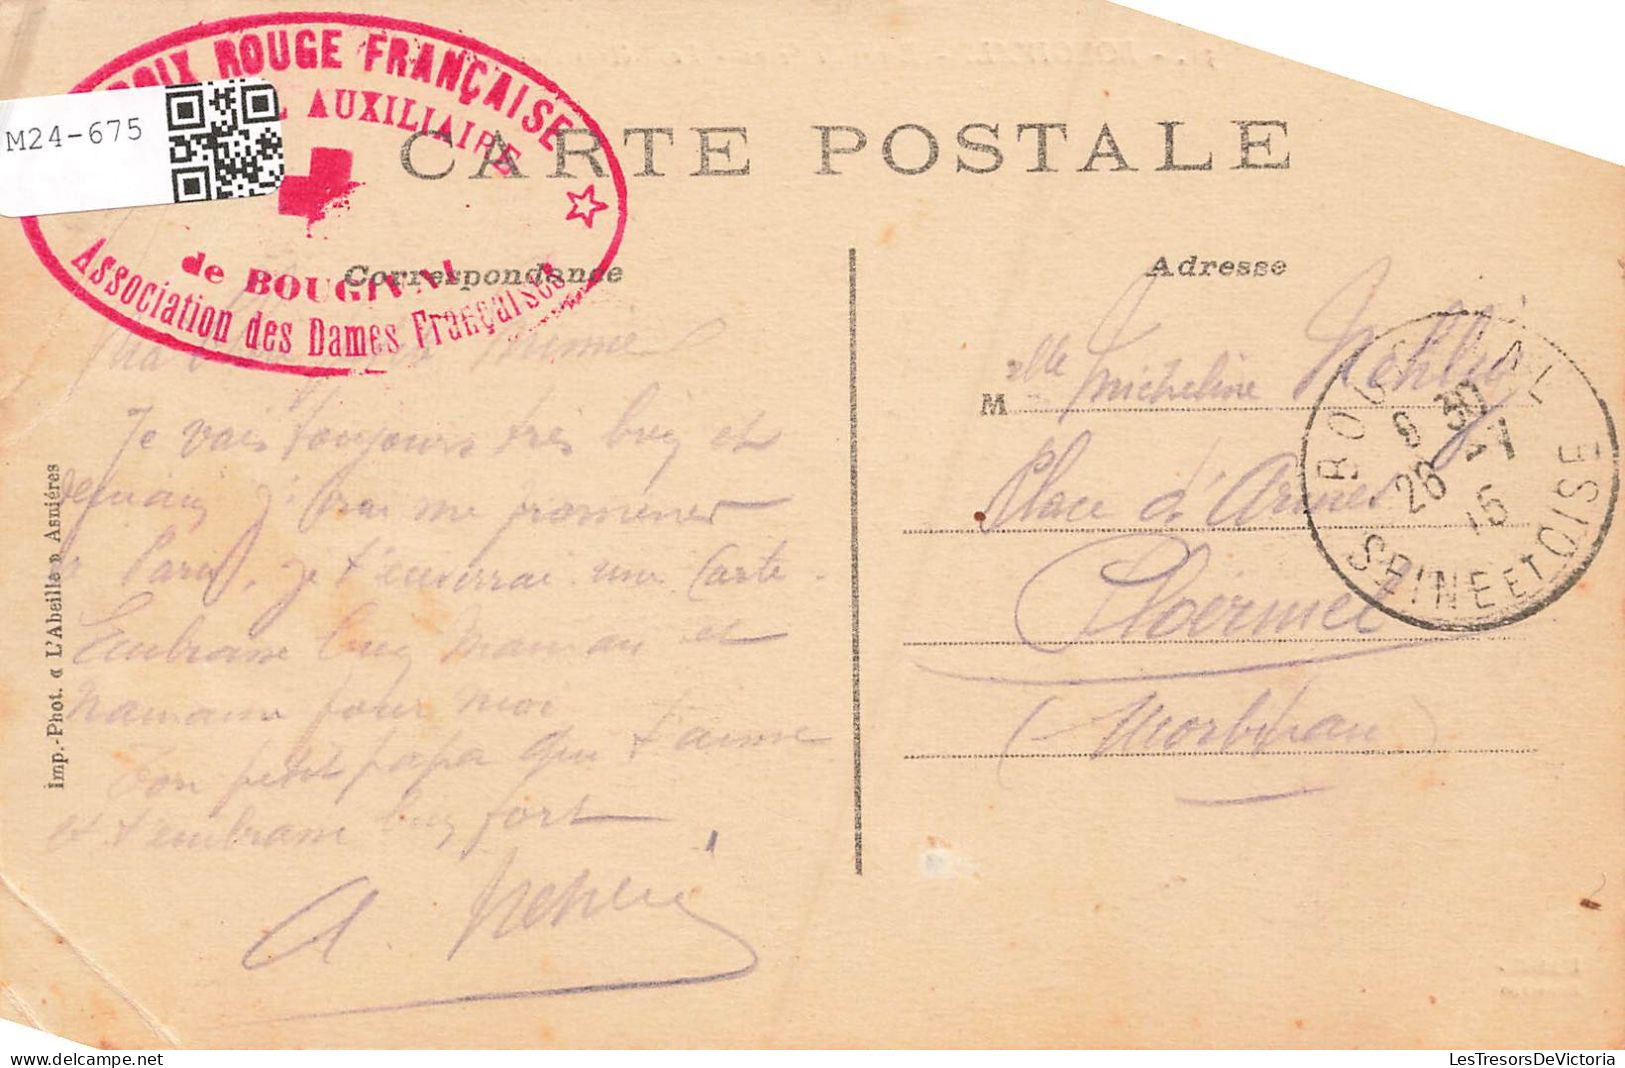 M24-675
ROUGE FRANÇAISE
AUXILIAIRE
de BOUGIVAL
Association des Dames Françaises
CARTE POSTALE
Correspondance
Adresse
Mimie
Je vais toujours très bien et
demain j'irai me promener
à Paris, je t'enverrai une Carte.
Embrasse bien Maman et
Mamama pour moi
Ton petit papa qui t'aime
et t'embrasse bien fort
A. Nehlig
M elle Micheline Nehlig
Place d'Armes
Ploërmel
(Morbihan)
BOUGIVAL
8 30
26 -1
15
SEINE ET OISE
Imp.-Phot. « L'Abeille » Asnières
LesTresorsDeVictoria